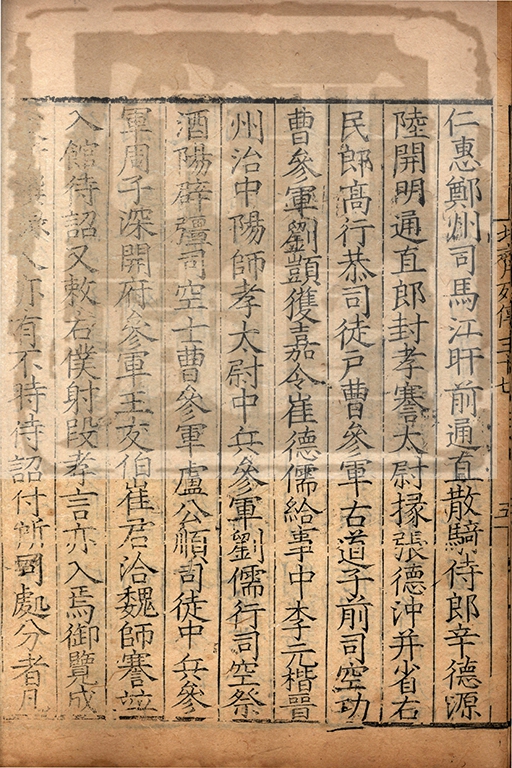 北齊列傳三十七 五
仁惠鄭州司馬江旰前通直散騎侍郎辛德源
陸開明通直郎封孝謇大尉掾張德沖并省右
民郎高行恭司徒戶曹參軍古道子前司空功
曹參軍劉顗獲嘉令崔德儒給事中李元楷晉
州治中陽師孝大尉中兵參軍劉儒行司空祭
酒陽辟彊司空士曹參軍盧公順司徒中兵參
軍周子深開府參軍王友伯崔君洽魏師謇並
入館待詔又敕右僕射段孝言亦入焉御覽成
撰人亦有不時待詔付所處分者凡